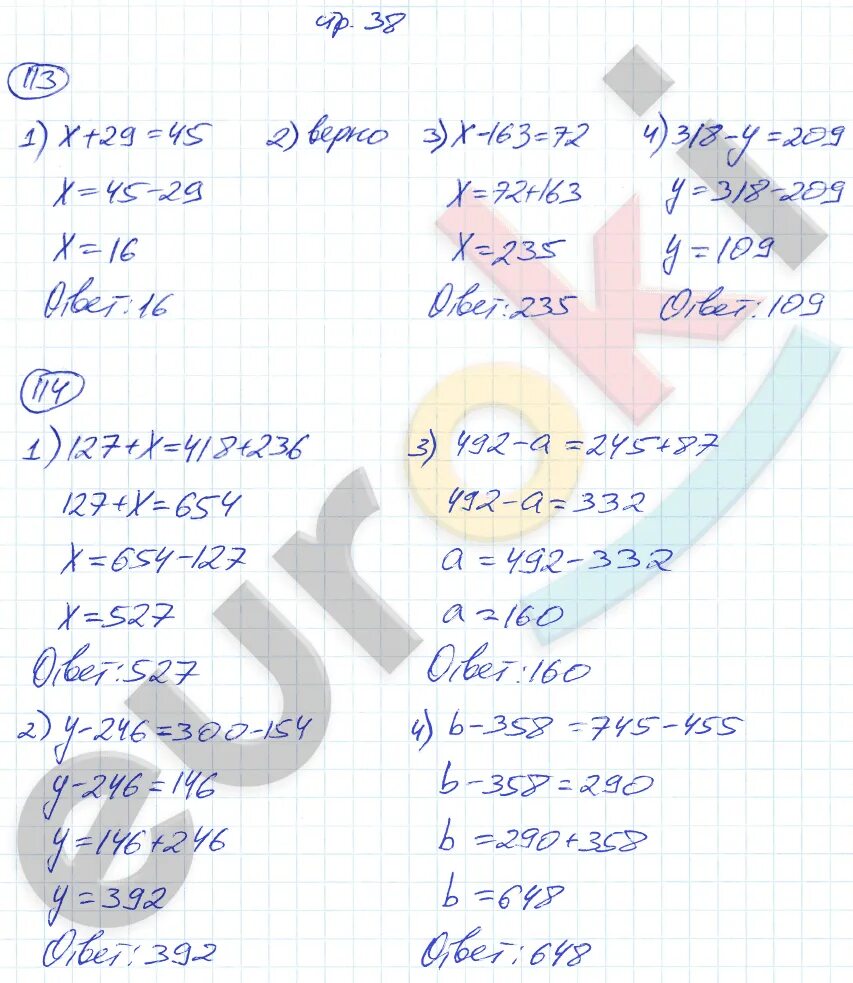 стр. 38
113
1) x+29=45
x=45-29
x=16
Ответ: 16
2) верно
3) x-163=72
x=72+163
x=235
Ответ: 235
4) 318-y=209
y=318-209
y=109
Ответ: 109
114
1) 127+x=418+236
127+x=654
x=654-127
x=527
Ответ: 527
2) y-246=300-154
y-246=146
y=146+246
y=392
Ответ: 392
3) 492-a=245+87
492-a=332
a=492-332
a=160
Ответ: 160
4) b-358=745-455
b-358=290
b=290+358
b=648
Ответ: 648
euroki